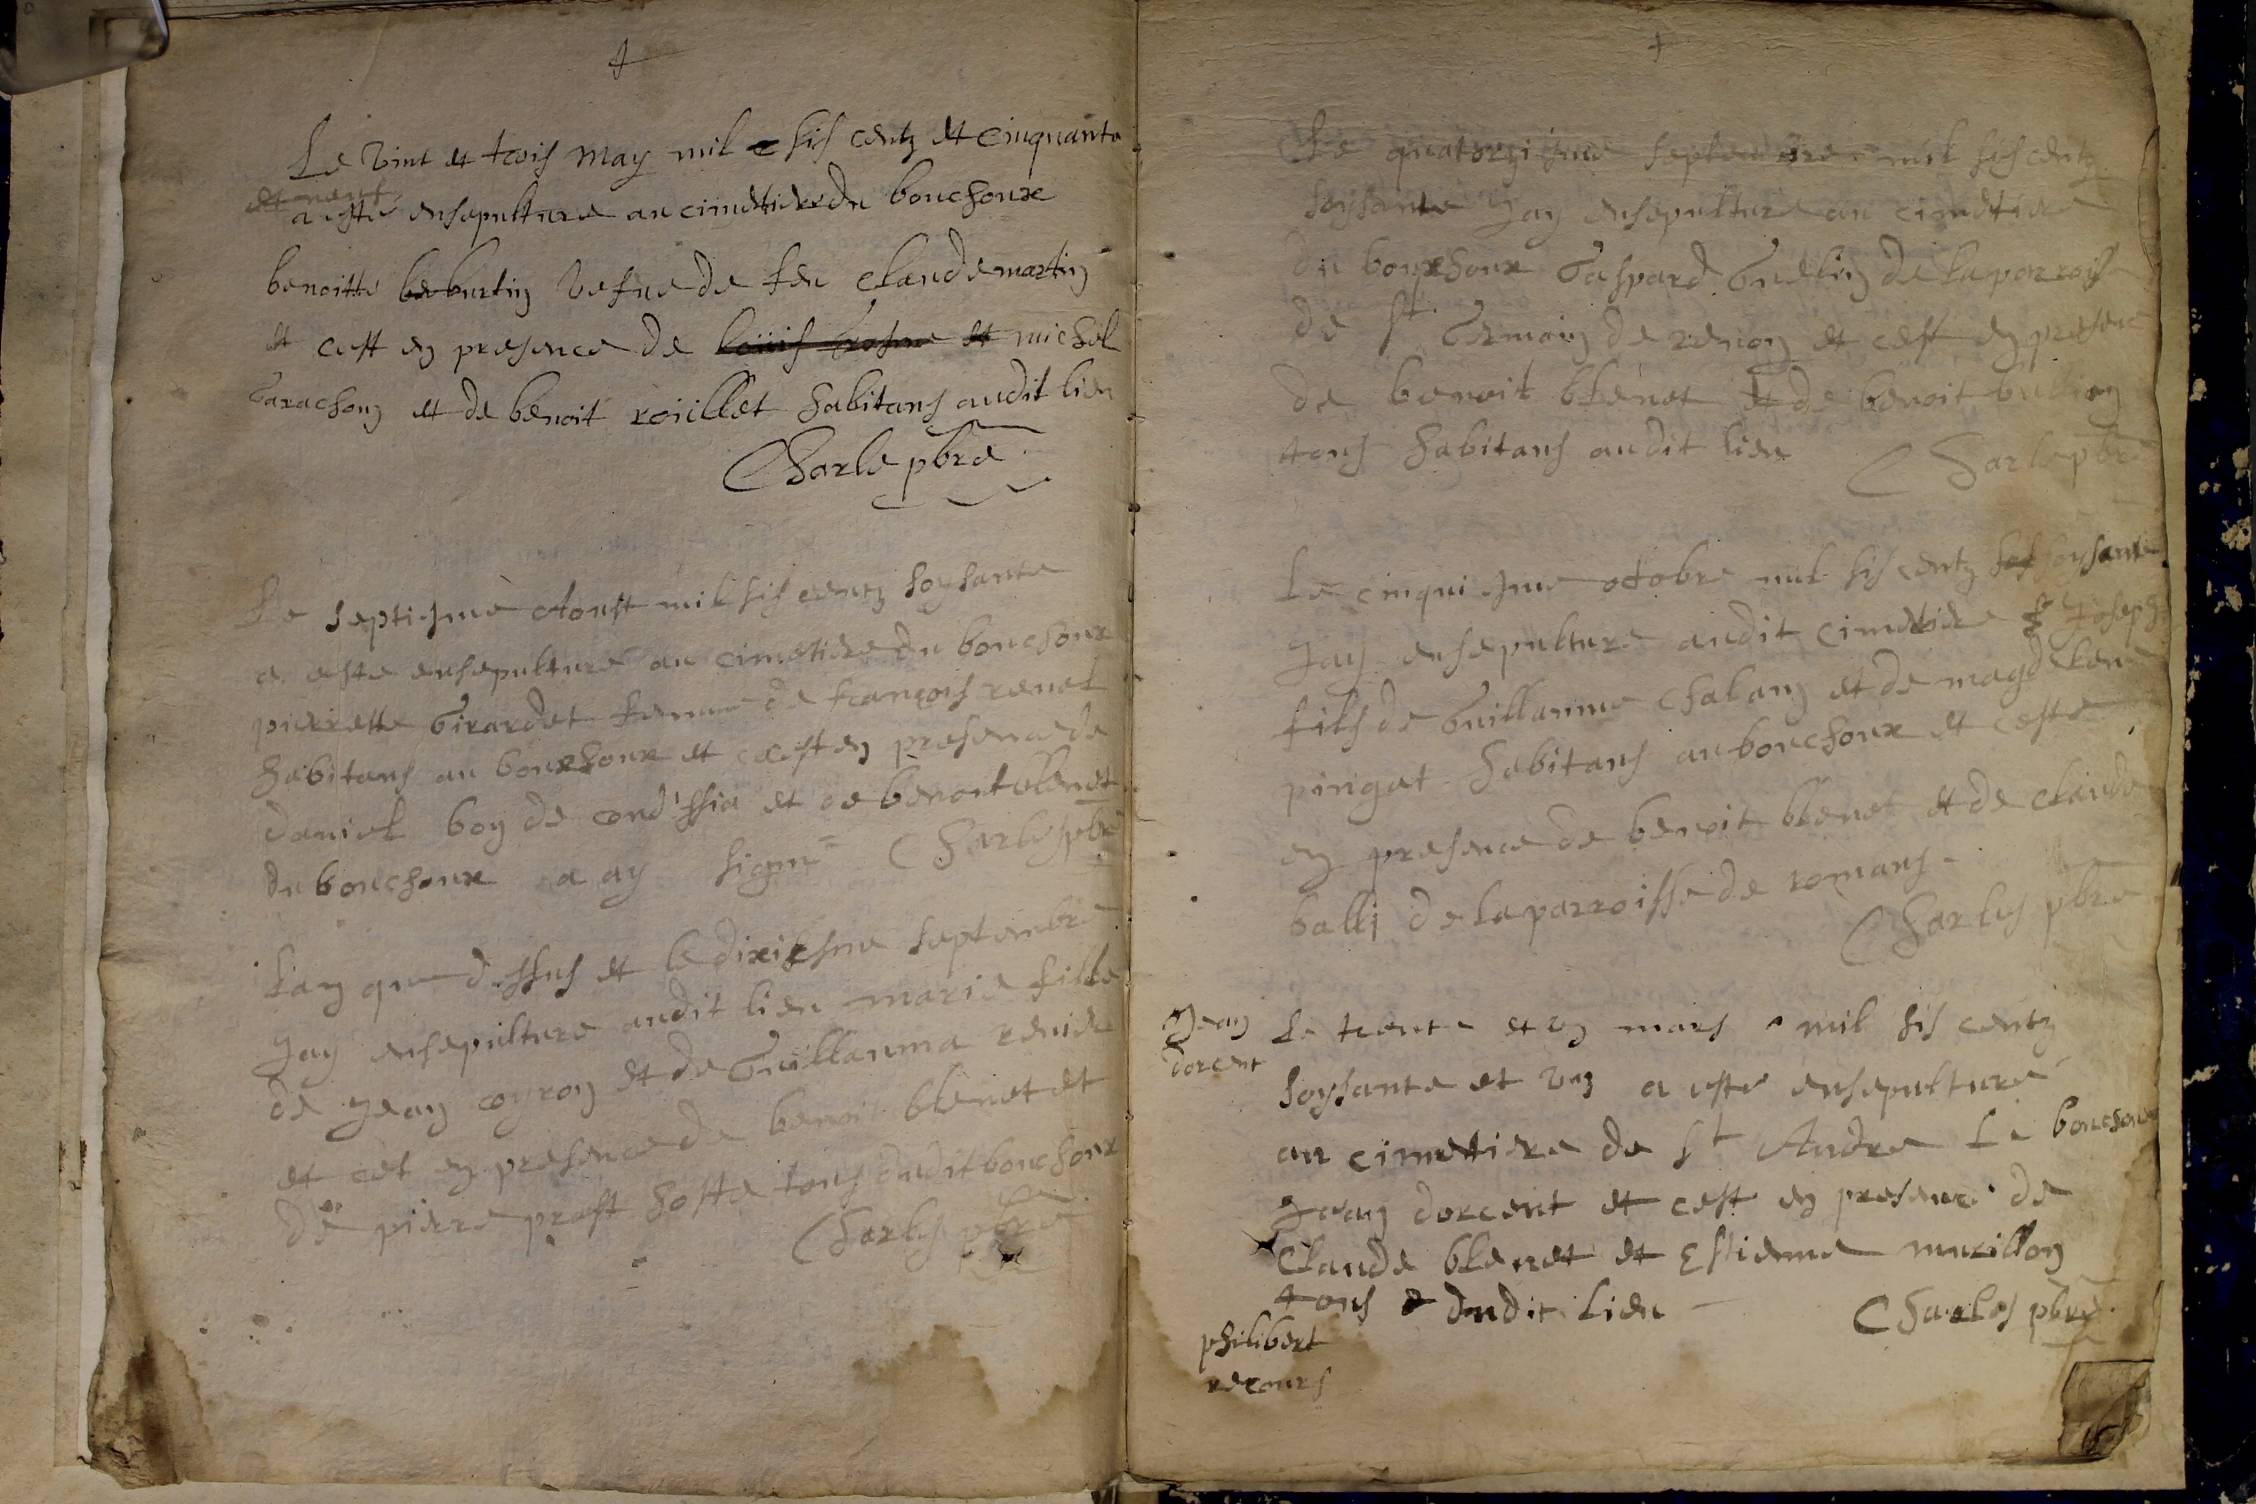 Le vint et trois may mil sis centz et cinquante
et neuf
a esté ensepulturé au cimetiere du bouchoux
benoitte berburtin vefue de feu claude martin
et cest en presence de louis et michel
Garachon et de benoit roüillet habitans audit lieu
Charle pbre
Le septiesme Aoust mil sis centz soysante
a este ensepulturé au cimetiere du bouchoux
pierrette Girardet femme de françois renel
habitans au bouchoux et cest en presence de
daniel boy de cond'ssia et de benoit blenet
du bouchoux a ay signe Charles pbre
Lan que dessus et le dixiesme septembre
Jay ensepulture audit lieu marie fille
de Jean coyron et de Guillauma renier
et cet en presence de benoit blenet et
de pierre prost hoste tous dudit bouchoux
Charles pbre
Le quatorziesme septembre mil sis centz
soysante Jay ensepulture au cimetiere
du bouchoux Gaspard Guelin de la parroisse
de St Germain de renon et cest en presence
de benoit blenet et de benoit bullion
tous habitans audit lieu Charle pbre
Le cinquiesme octobre mil sis centz soysante
Jay ensepulture audit cimetiere Joseph
fils de Guillaume chalan et de magdelene
pingat habitans au bouchoux et ceste
en presence de benoit blenet et de claude
balli de la parroisse de romans
Charles pbre
Jean
dorcent
Le trente et un mars mil sis centz
soysante et un a esté ensepulturé
au cimetiere de St Andre Le bouchoux
Jean dorcent et cest en presence de
Claude blenet et Estienne murillon
tous dudit lieu Charles pbre
philibert
recours